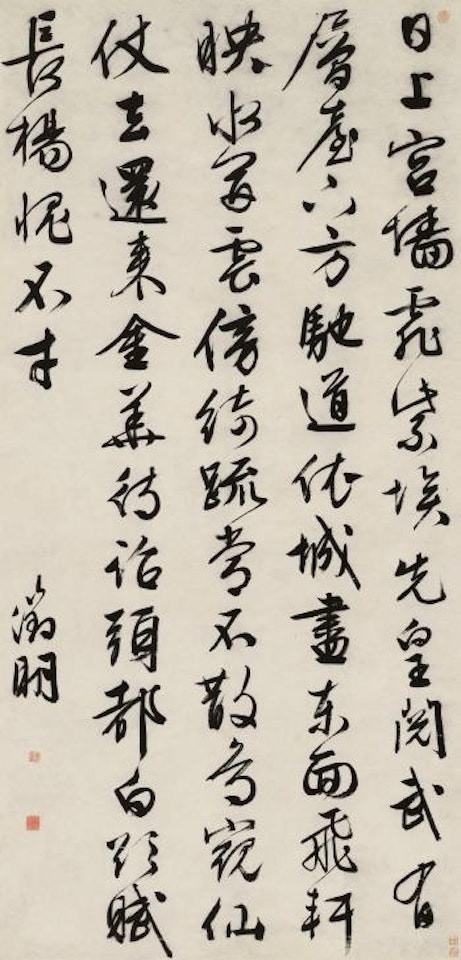 日上宮墻飛紫埃先皇閱武有
層臺下方馳道依城盡東面飛軒
映水開雲傍綺疏常不散鳥窺仙
仗去還來金華待詔頭都白欲賦
長楊愧不才
徵明